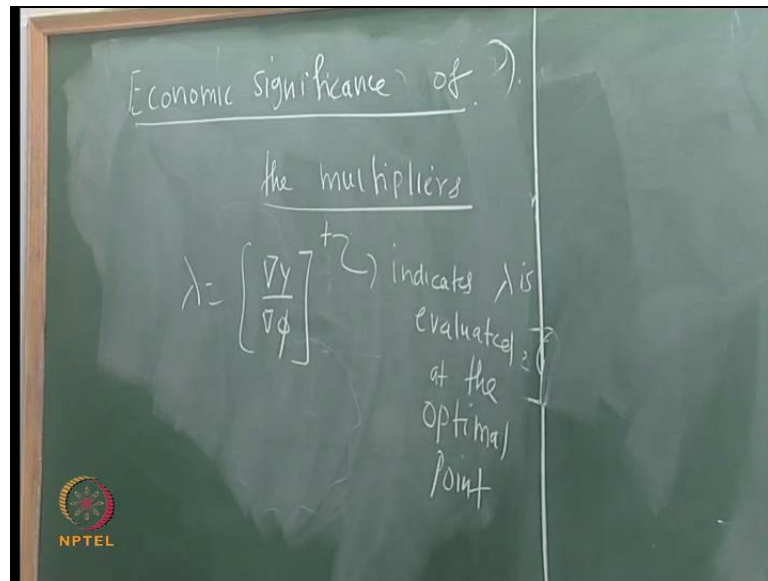 Economic significance of
the multipliers
λ = [∇y / ∇φ]⁺ indicates λ is
evaluated
at the
optimal
point
NPTEL